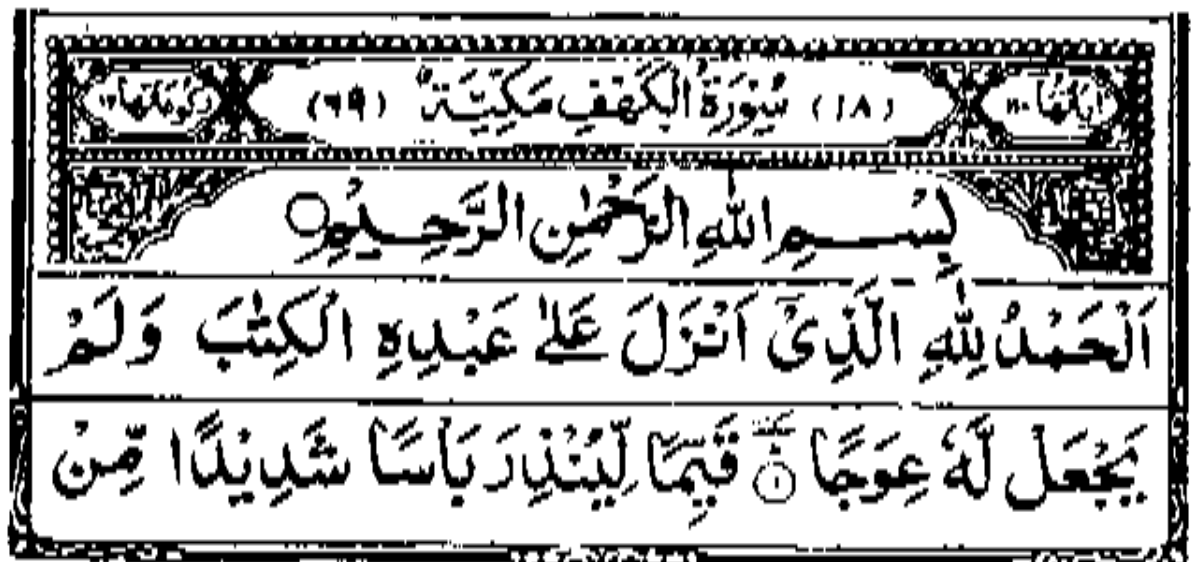 اٰیاتُها ۱۱۰ (۱۸) سُوْرَةُ الْکَهْفِ مَکِّیَّةٌ (۶۹) رُکُوْعَاتُها ۱۲
بِسْمِ اللّٰهِ الرَّحْمٰنِ الرَّحِیْمِ
اَلْحَمْدُ لِلّٰهِ الَّذِیْۤ اَنْزَلَ عَلٰی عَبْدِهِ الْکِتٰبَ وَلَمْ
یَجْعَلْ لَّهٗ عِوَجًا ﴿۱﴾ قَیِّمًا لِّیُنْذِرَ بَاْسًا شَدِیْدًا مِّنْ